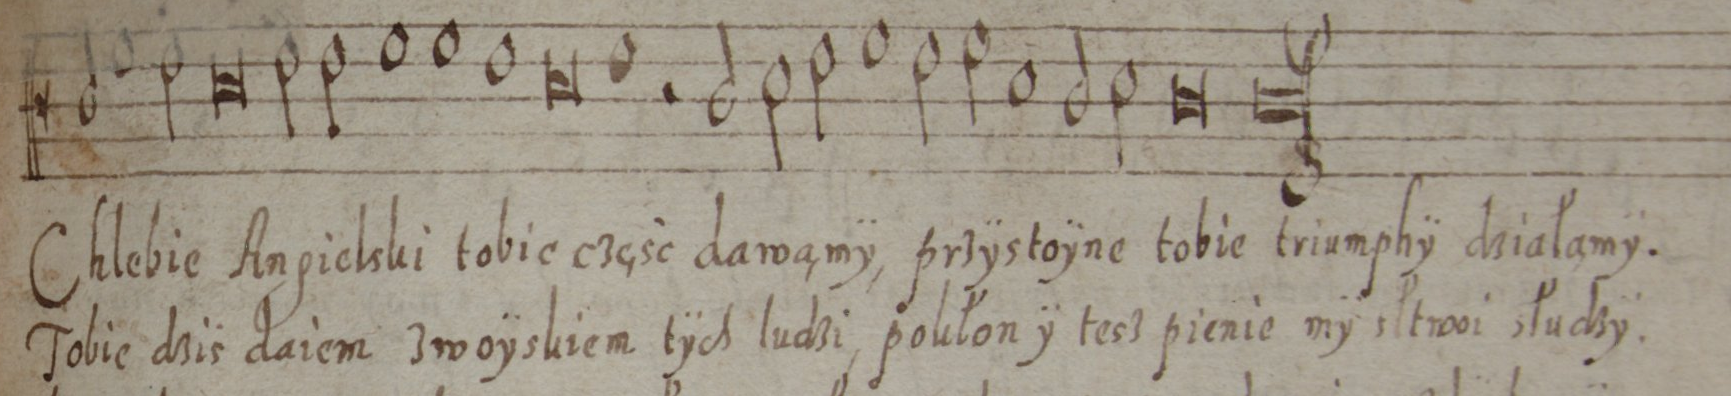 Chlebie Angielski tobie częśc dawąmÿ, przÿstoÿne tobie triumphÿ działąmÿ.
Tobie dziś daiem zwoÿskiem tÿch ludzi, pokłon ÿ tesz pienie mÿ słudzÿ.